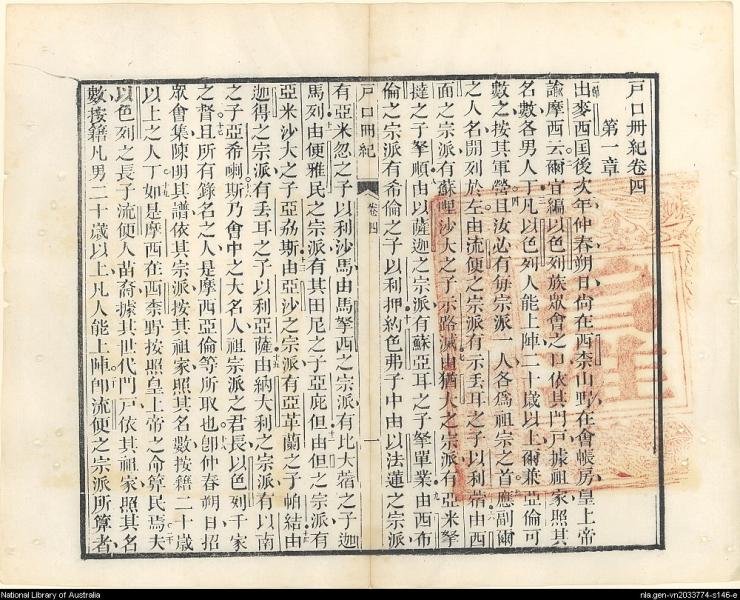 戶口冊紀卷四
第一章
出麥西国後次年仲春朔日尙在西柰山野在會帳房皇上帝
諭摩西云爾宜編以色列族眾會之口依其門戸據祖家照其
名數各男人丁凡以色列人能上陣二十歲以上爾兼亞倫可
數之按其軍營且汝必有每宗派一人各為祖宗之首應副爾
之人名開列於左由流便之宗派有示丟耳之子以利
面之宗派有蘇哩沙大之子示路滅由猶大之宗派有亞米拏
撻之子拏順由以薩迦之宗派有蘇亞耳之子拏單業由西布
倫之宗派有希倫之子以利押約色弗子中由以法蓮之宗派
戸口冊紀
卷四
一
有亞米忽之子以利沙馬由馬拏西之宗派有比大蓿之子迦
馬列由便雅民之宗派有其田尼之子亞庇但由但之宗派有
亞米沙大之子亞劦斯由亞沙之宗派有亞革蘭之子帕結由
迦得之宗派有丟耳之子以利亞薩由納大利之宗派有以南
之子亞希喇斯乃會中之大名人祖宗派之君長以色列千家
之督且所有錄名之人是摩西亞倫等所取也卽仲春朔日招
眾會集陳明其譜依其宗派按其祖家照其名數按籍二十歲
以上之人丁如是摩西在西柰野按照皇上帝之命算民焉夫
以色列之長子流便人苗裔據其世代門戸依其祖家照其名
數按籍凡男二十歲以上凡人能上陣卽流便之宗派所算者
National Library of Australia
nla.gen-vn2033774-s146-e